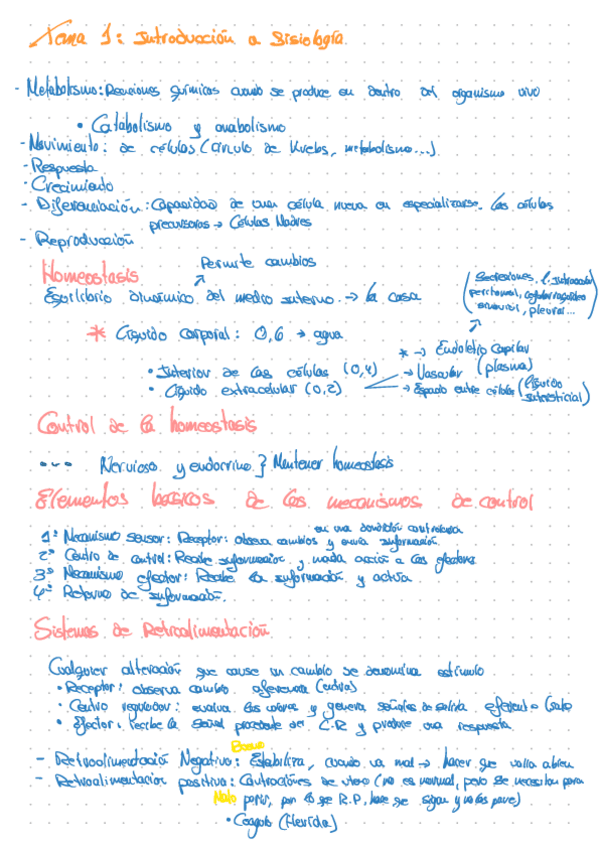 Tema 1: Introducción a Fisiología.
- Metabolismo: Reacciones químicas cuando se produce en dentro del organismo vivo
• Catabolismo y anabolismo
- Movimiento: de células (Circulo de Krebs, metabolismo...)
- Respuesta
- Crecimiento
- Diferenciación: Capacidad de una célula nueva en especializarse. Las células
precursoras → Células Madres
- Reproducción
Permite cambios
Homeostasis
Equilibrio dinámico del medio interno. → la casa
(Secreciones, l. intraocular
peritoneal, cefalorraquídeo
sinovial, pleural...
* Líquido corporal: 0,6 → agua
* → Endotelio Capilar
• Interior de las células (0,4)
→ Vascular (plasma)
• Líquido extracelular (0,2)
→ Espacio entre células (líquido intersticial)
Control de la homeostasis
••• Nervioso y endocrino } Mantener homeostasis
Elementos básicos de los mecanismos de control
en una condición controlada
1º Mecanismo sensor: Receptor: observa cambios y envía información.
2º Centro de control: Recibe información y manda acción a los efectores
3º Mecanismo efector: Recibe la información y actúa
4º Retorno de información.
Sistemas de Retroalimentación
Cualquier alteración que cause un cambio se denomina estímulo
• Receptor: observa cambio. aferencia (entra)
• Centro regulador: evalua los valores y genera señales de salida. eferente (sale)
• Efector: recibe la señal procedente del C.R y produce una respuesta
Bueno
- Retroalimentació Negativo: Estabiliza, cuando va mal → hacer que vuelva a bien
- Retroalimentacion positiva: Contracciones de utero (no es normal, pero se necesitan para
Malo parir, por lo que R.P, hace que sigan y no las pare)
• Coagulo (Herida)